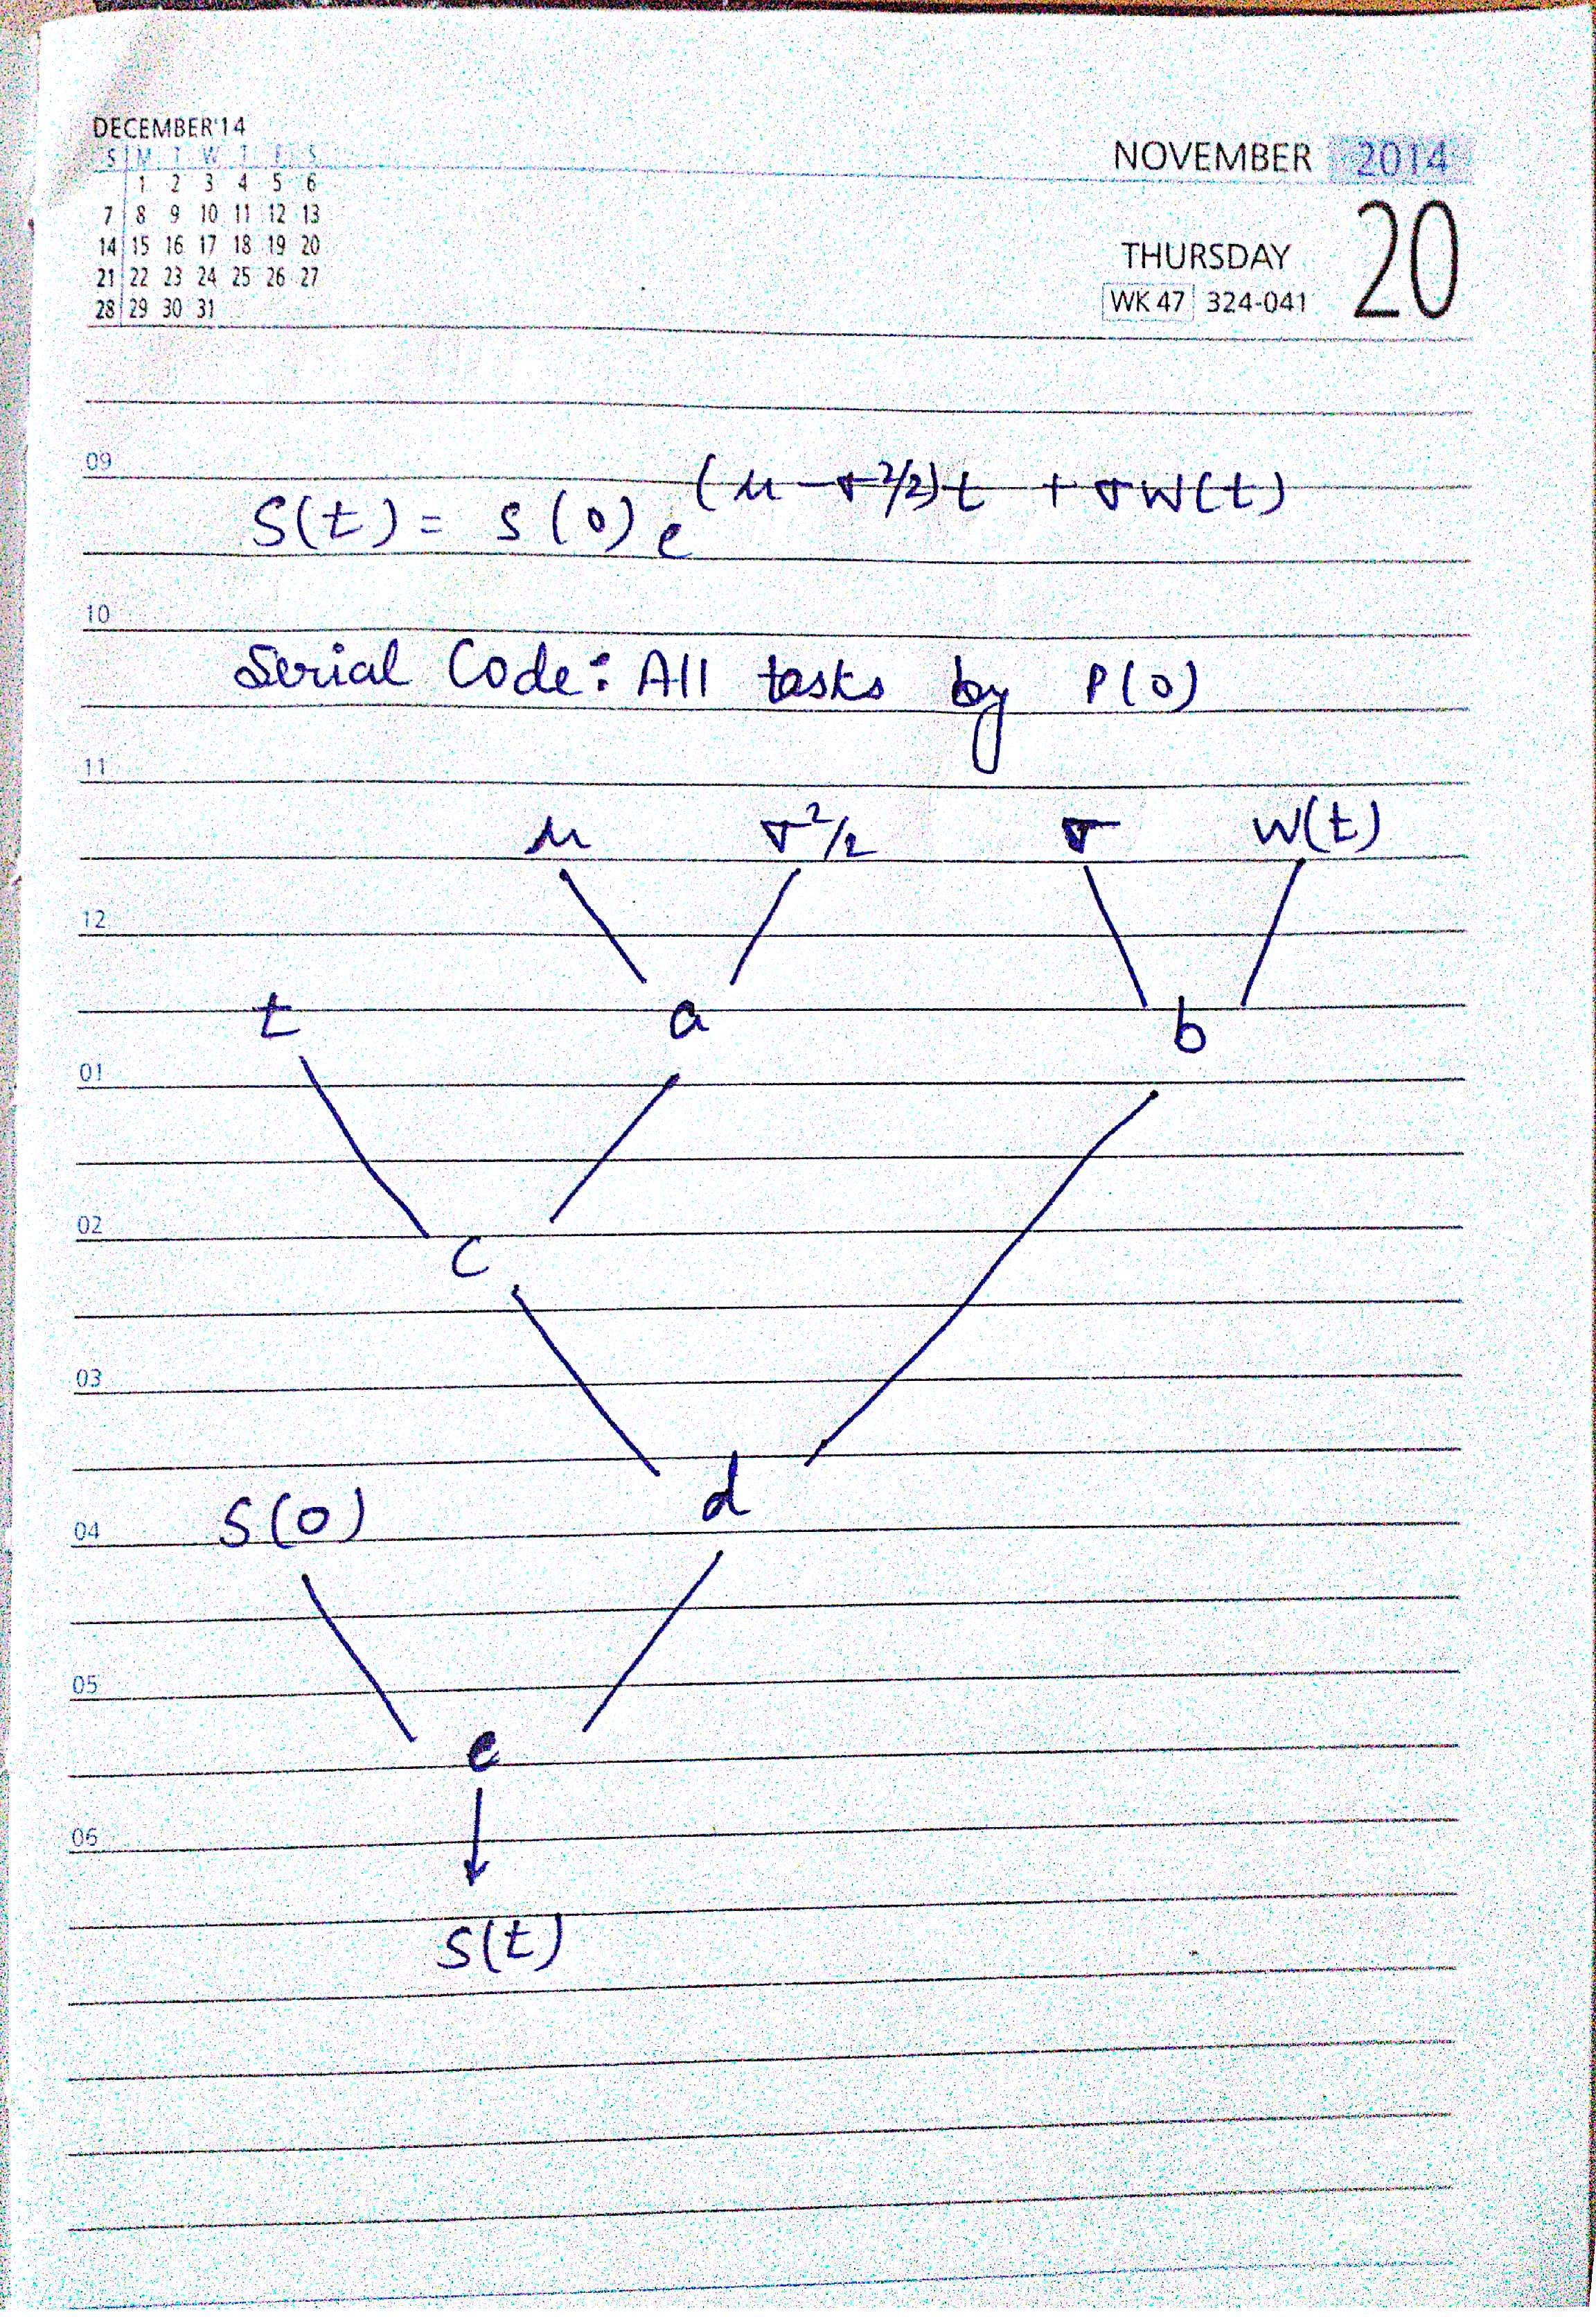 DECEMBER'14
S M T W T F S
1 2 3 4 5 6
7 8 9 10 11 12 13
14 15 16 17 18 19 20
21 22 23 24 25 26 27
28 29 30 31
NOVEMBER 2014
THURSDAY 20
WK 47 324-041
09
S(t) = S(0) e^(μ - σ²/2)t + σW(t)
10
Serial Code: All tasks by P(0)
11
μ σ²/2 σ W(t)
12
t a b
01
02
c
03
S(0) d
04
05
e
06
S(t)